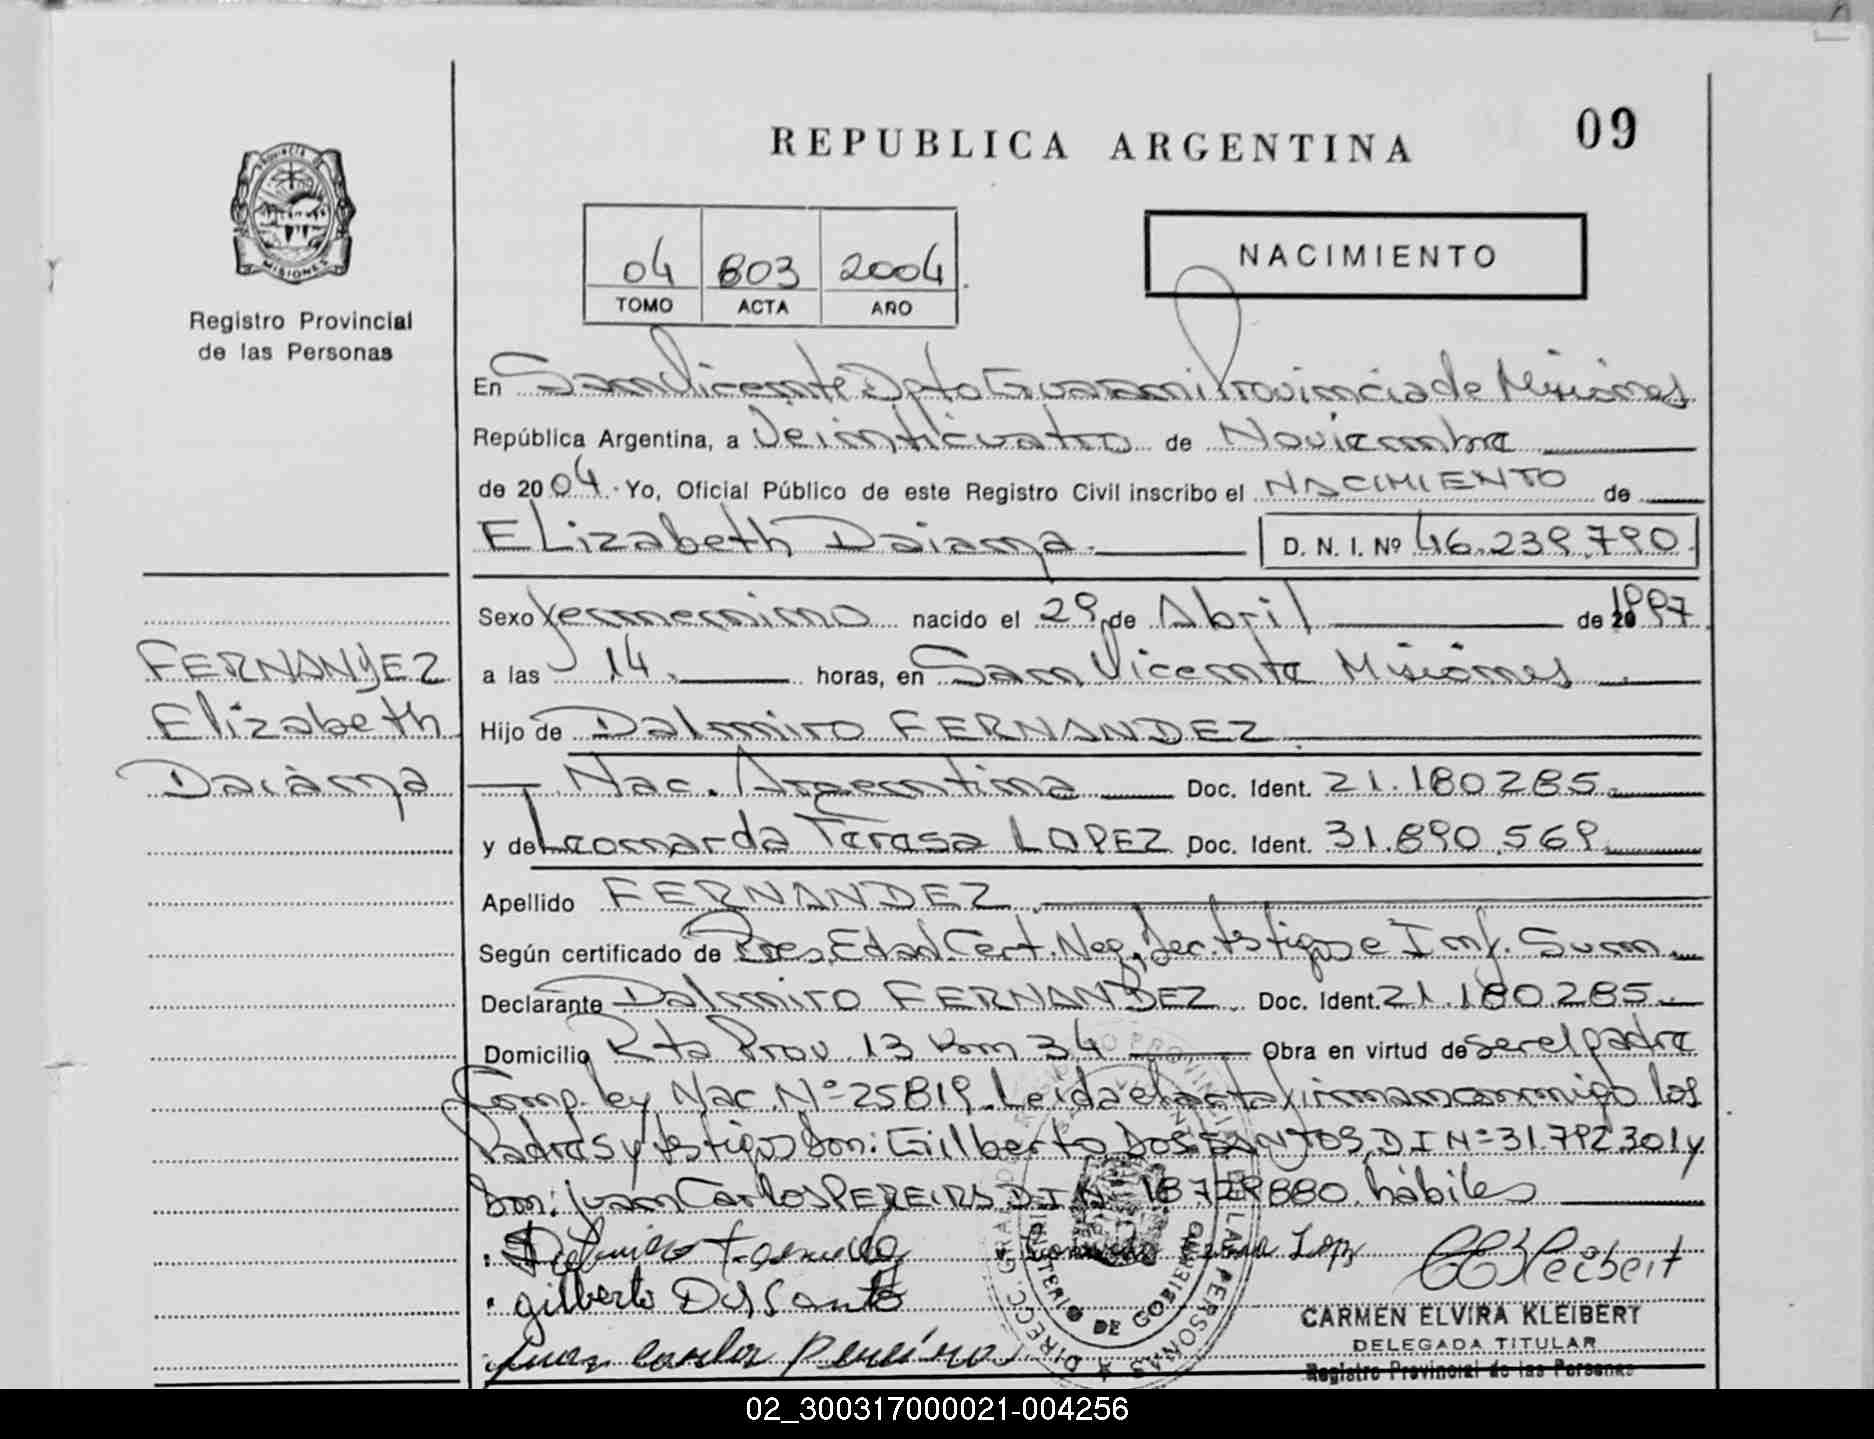 REPUBLICA ARGENTINA
09
PROVINCIA DE
MISIONES
Registro Provincial
de las Personas
04 803 2004
TOMO ACTA AÑO
NACIMIENTO
En San Vicente Dpto Guarani Provincia de Misiones
República Argentina, a Veinticuatro de Noviembre
de 2004. Yo, Oficial Público de este Registro Civil inscribo el NACIMIENTO de
Elizabeth Daiana. D. N. I. Nº 46.239.790.
Sexo femenino nacido el 29 de Abril de 20 1997.
a las 14. horas, en San Vicente Misiones.
Hijo de Dalmiro FERNANDEZ.
Nac. Argentina Doc. Ident. 21.180285.
y de Leonarda Teresa LOPEZ Doc. Ident. 31.890.569.
Apellido FERNANDEZ.
Según certificado de Pres. Edad. Cert. Neg. Dec. testigos e Inf. Sum.
Declarante Dalmiro FERNANDEZ. Doc. Ident. 21.180285.
Domicilio Rta Prov 13 Km 34 Obra en virtud de ser el padre
Comp. ley Nac. Nº 25819. Leida el acta firman conmigo los
Padres y testigos Don: Gilberto DOS SANTOS, D I Nº 31.792.301 y
Don: Juan Carlos PEREIRA D I Nº 18729880. hábiles
FERNANDEZ
Elizabeth
Daiana
Lopz CEKleibert
gilberto Dos Santo
CARMEN ELVIRA KLEIBERT
DELEGADA TITULAR
Registro Provincial de las Personas
Juan carlos Pereira
DIRECC. GRAL. DEL REGISTRO PROVINCIAL DE LAS PERSONAS
MINISTERIO DE GOBIERNO
02_300317000021-004256